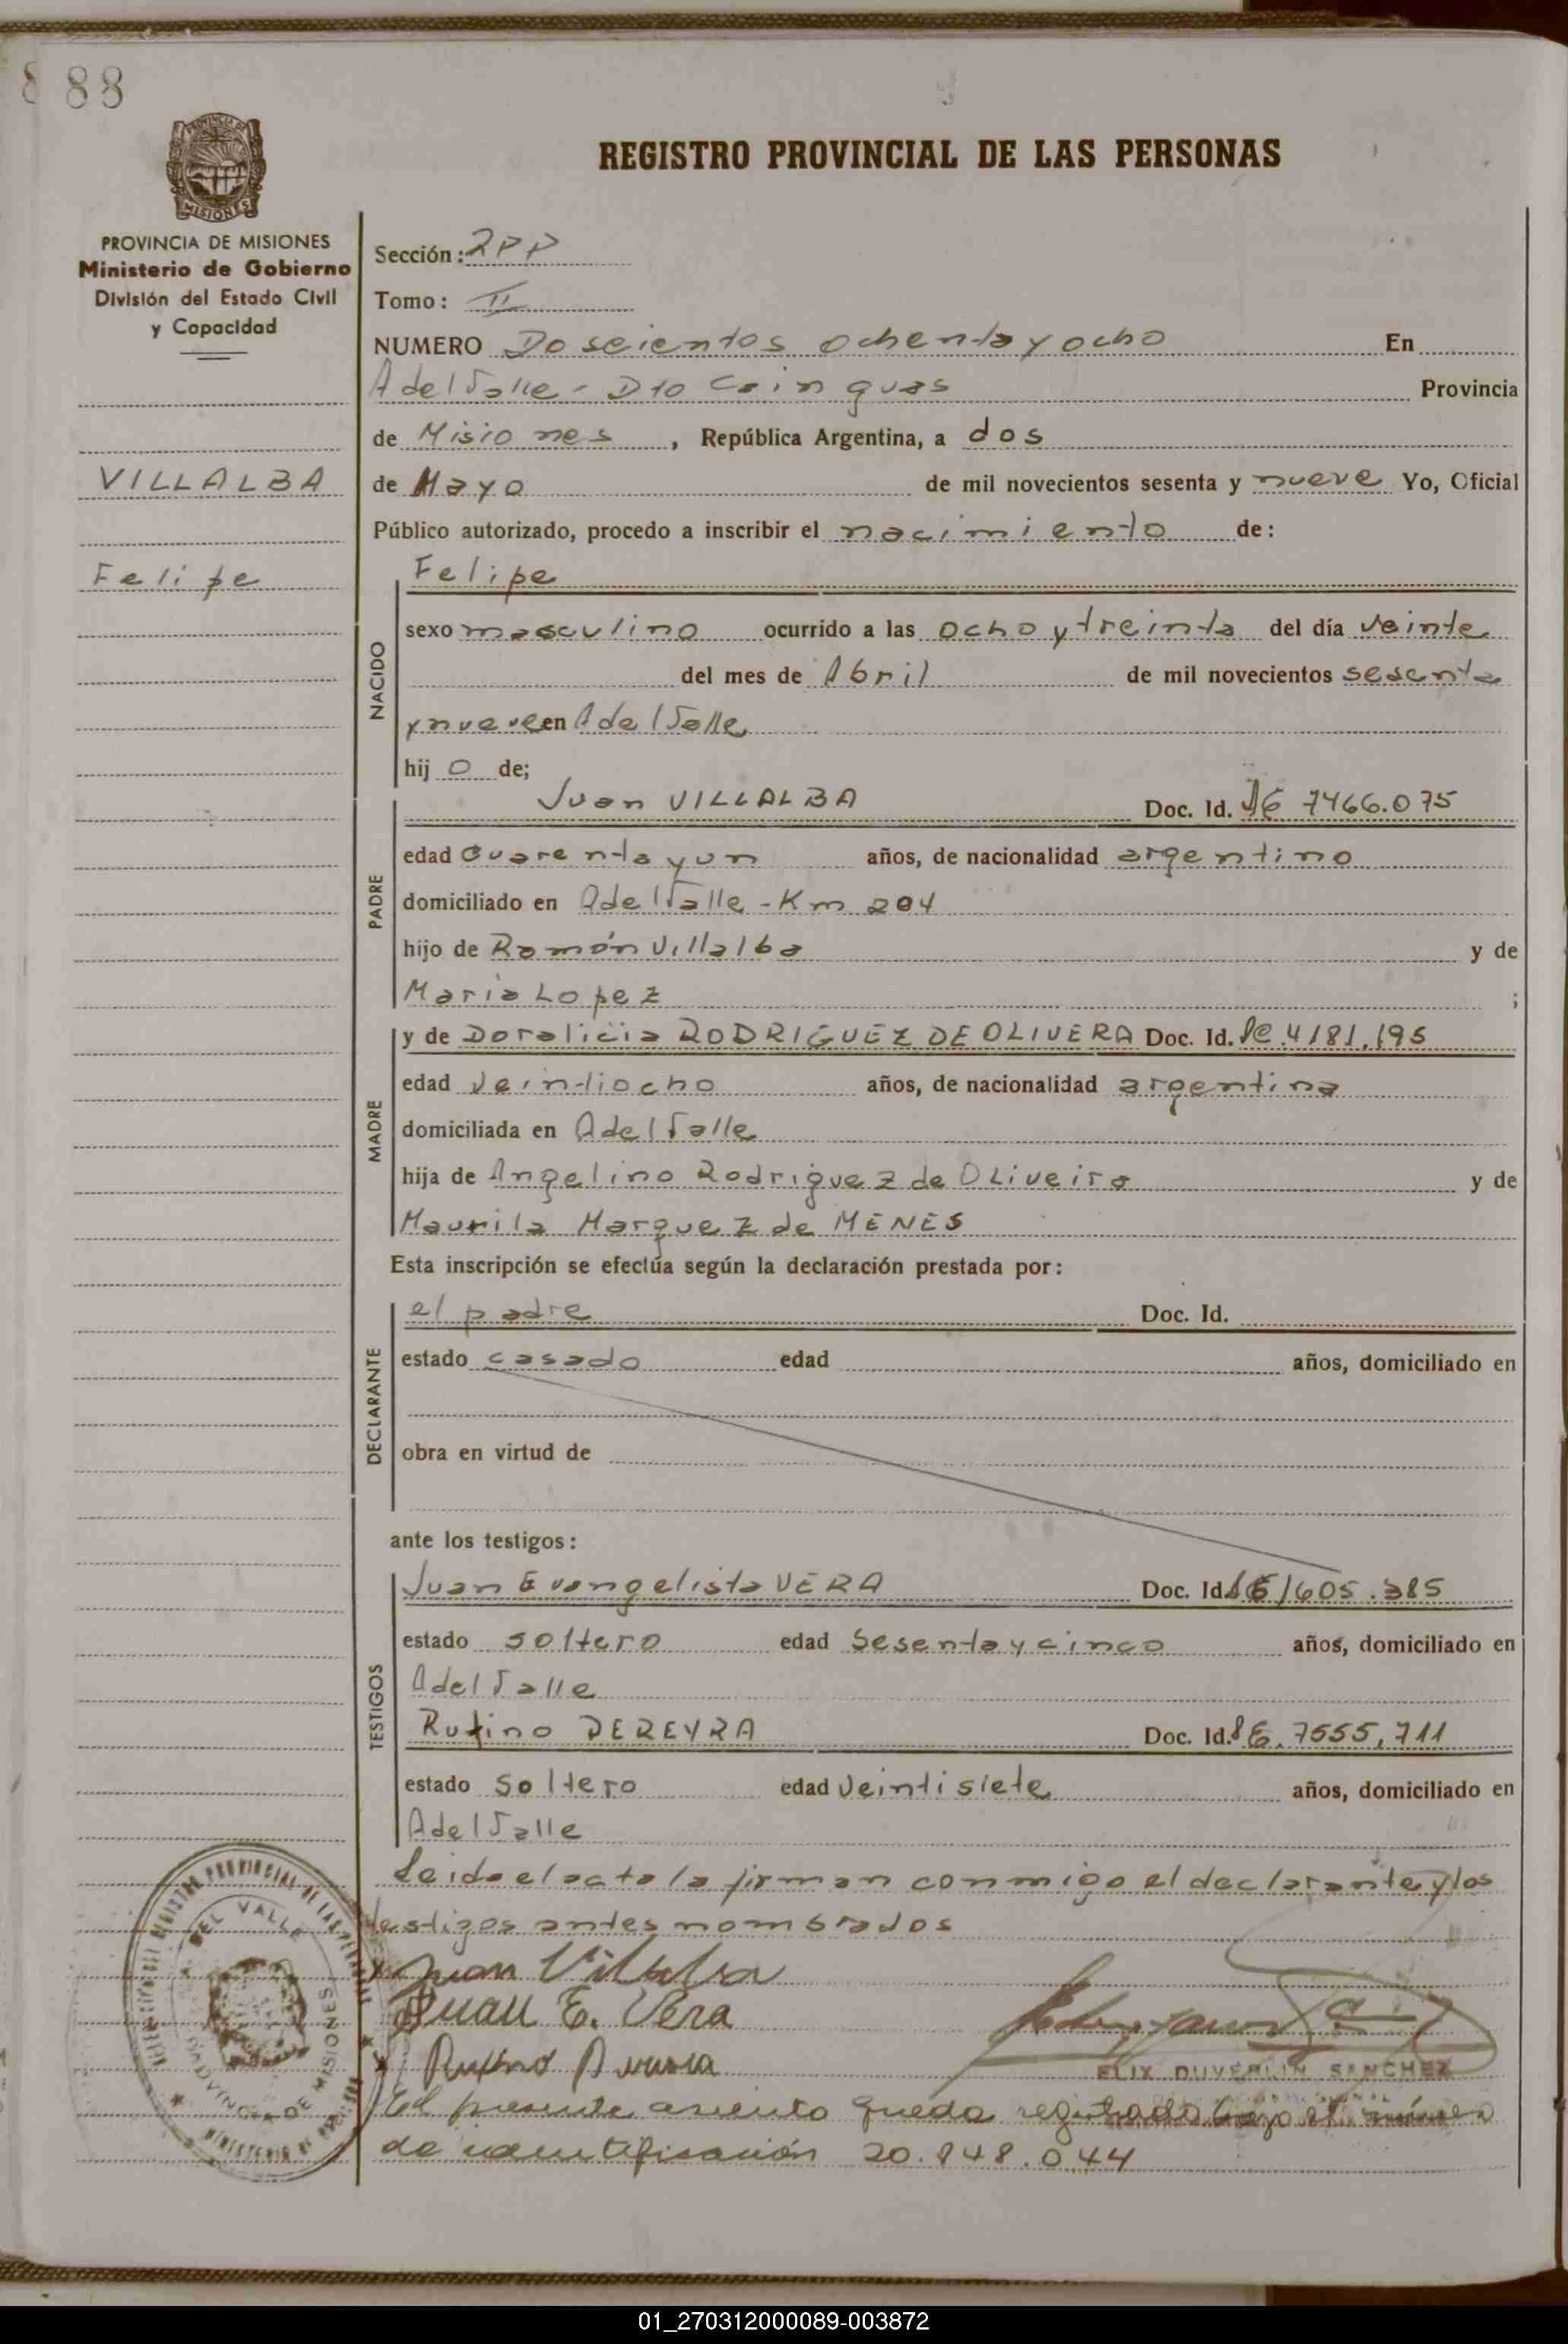 88
REGISTRO PROVINCIAL DE LAS PERSONAS
PROVINCIA DE MISIONES
Ministerio de Gobierno
División del Estado Civil
y Capacidad
VILLALBA
Felipe
Sección: 2PP
Tomo: II
NUMERO Doscientos ochenta y ocho En
A del Valle - Dto Cainguas Provincia
de Misiones, República Argentina, a dos
de Mayo de mil novecientos sesenta y nueve Yo, Oficial
Público autorizado, procedo a inscribir el nacimiento de:
NACIDO
Felipe
sexo masculino ocurrido a las ocho y treinta del día veinte
del mes de Abril de mil novecientos sesenta
y nueve en A del Valle
hijo de;
PADRE
Juan VILLALBA Doc. Id. 7466.075
edad Cuarenta y un años, de nacionalidad argentino
domiciliado en A del Valle - Km 204
hijo de Ramón Villalba y de
Maria Lopez ;
MADRE
y de Doralicia RODRIGUEZ DE OLIVERA Doc. Id. 4181.195
edad Veintiocho años, de nacionalidad argentina
domiciliada en A del Valle
hija de Angelino Rodriguez de OLiveira y de
Maurila Marquez de MENES
Esta inscripción se efectúa según la declaración prestada por:
DECLARANTE
el padre Doc. Id.
estado casado edad años, domiciliado en
obra en virtud de
ante los testigos:
TESTIGOS
Juan Evangelista VERA Doc. Id. 1605.385
estado soltero edad Sesenta y cinco años, domiciliado en
A del Valle
Rufino PEREYRA Doc. Id. 7555,711
estado Soltero edad Veintisiete años, domiciliado en
A del Valle
Leida el acta la firman conmigo el declarante y los
testigos antes nombrados
Juan Villalba
Juan E. Vera
Rufino
FELIX DUVERLIN SANCHEZ
El presente asiento queda registrado bajo el número
de identificación 20.848.044
DEL VALLE
PROVINCIA DE MISIONES
01_270312000089-003872